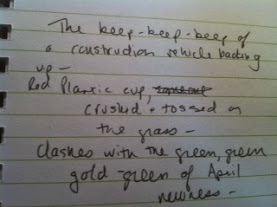 The beep-beep-beep of
a construction vehicle backing
up—
Red Plastic cup,
crushed + tossed on
the grass—
Clashes with the green, green
gold-green of April
newness—